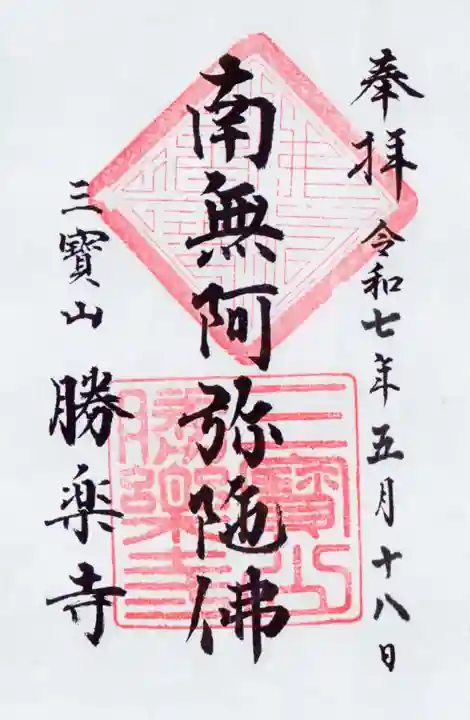 奉拝 令和七年五月十八日
南無阿弥陀佛
三寳山 勝楽寺
三寳山
勝樂寺